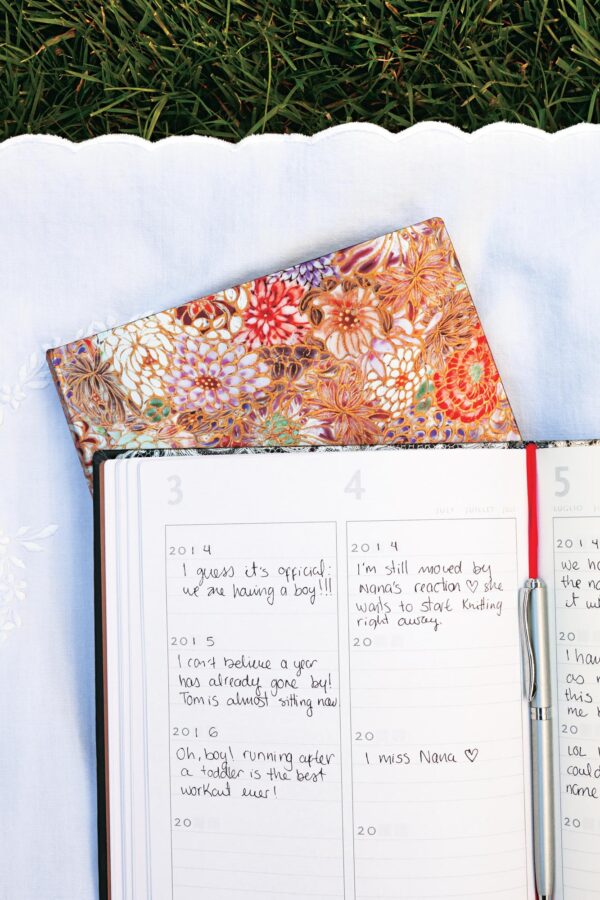 3
2014
I guess it's official:
we are having a boy!!!
2015
I can't believe a year
has already gone by!
Tom is almost sitting now
2016
Oh, boy! running after
a toddler is the best
workout ever!
20
4
JULY JUILLET JULI
2014
I'm still moved by
Nana's reaction ♡ she
wants to start knitting
right away.
20
20
I miss Nana ♡
20
5
LUGLIO
2014
we ha
the na
it w
20
I hav
as m
this
me b
20
LOL
could
name
20